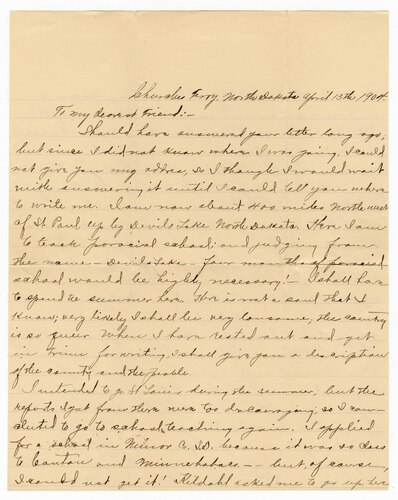 Churches Ferry, North Dakota April 13th, 1904.
To my dearest Friend:-
Should have answered your letter long ago,
but since I did not know where I was going, I could
not give you my addres, so I thought I would wait
with answering it until I could tell you where
to write me. I am now about 400 miles Northwest
of St. Paul, up by Devils Lake North Dakota. Here I am
to teach parocial school; and judging from
the name - Devils Lake - four months of parocial
school would be highly necessary! I shall have
to spend the summer here. Her is not a soul that I
know; very likely I shall be very lonesome, the country
is so queer. When I have rested out and get
in trim for writing I shall give you a description
of the country and the people.
I intended to go St Louis during the summer, but the
reports I got from there were too discouraging, so I con-
cluded to go to school teaching again. I applied
for a school in Minor C. S.D. because it was so close
to Canton and Minnehaha -- but of course,
I could not get it! Kildahl asked me to go up here